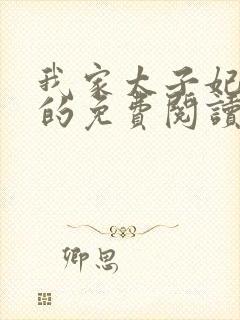 我家太子妃
的免費閱讀
卿思